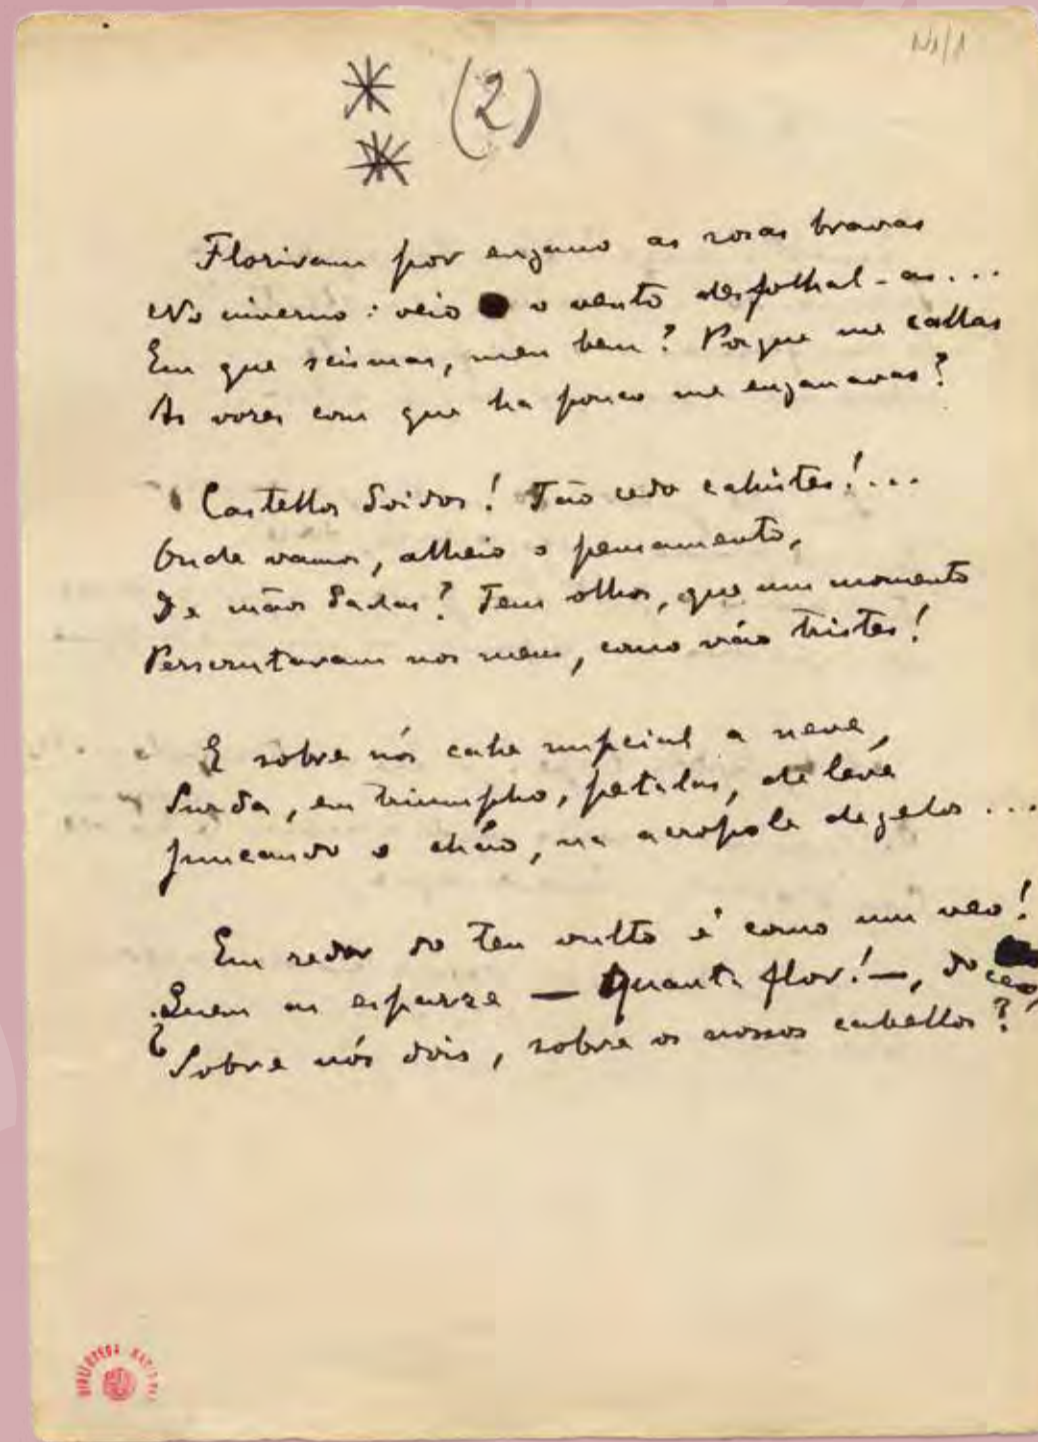 N1/1
* (2)
*
Floriram por engano as rosas bravas
No inverno: veio o vento desfolhal-as...
Em que scismas, meu bem? Porque me callas
As vozes com que ha pouco me enganavas?
Castellos doidos! Tão cedo cahistes!...
Onde vamos, alheio o pensamento,
De mãos dadas? Teus olhos, que um momento
Perscrutavam nos meus, como vão tristes!
E sobre nós cahe nupcial a neve,
Surda, em triumpho, petalas, de leve
Juncando o chão, na acropole de gelos...
Em redor do teu vulto é como um veo!
¿Quem as esparze — quanta flor! —, do ceo,
Sobre nós dois, sobre os nossos cabellos?
BIBLIOTECA NACIONAL